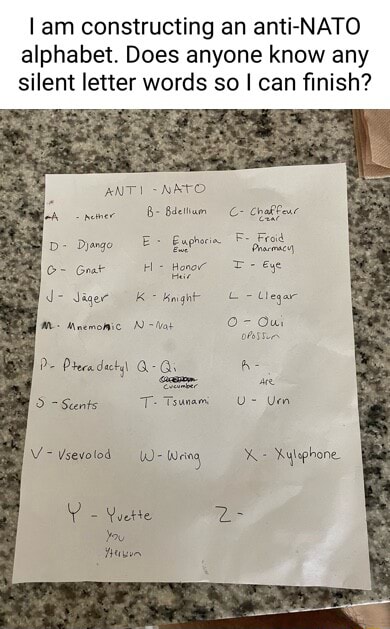 I am constructing an anti-NATO
alphabet. Does anyone know any
silent letter words so I can finish?
ANTI - NATO
A - Aether B- Bdellium C- Chaffeur
Czar
D - Django E - Euphoria F- Froid
Ewe Pharmacy
G - Gnat H - Honor I - Eye
Heir
J - Jäger K - Knight L - Llegar
M - Mnemonic N - Nat O - Oui
opossum
P- Pteradactyl Q - Qi R -
Cucumber Are
S - Scents T- Tsunami U - Urn
V - Vsevolod W - Wring X - Xylophone
Y - Yvette Z -
You
Yterbium